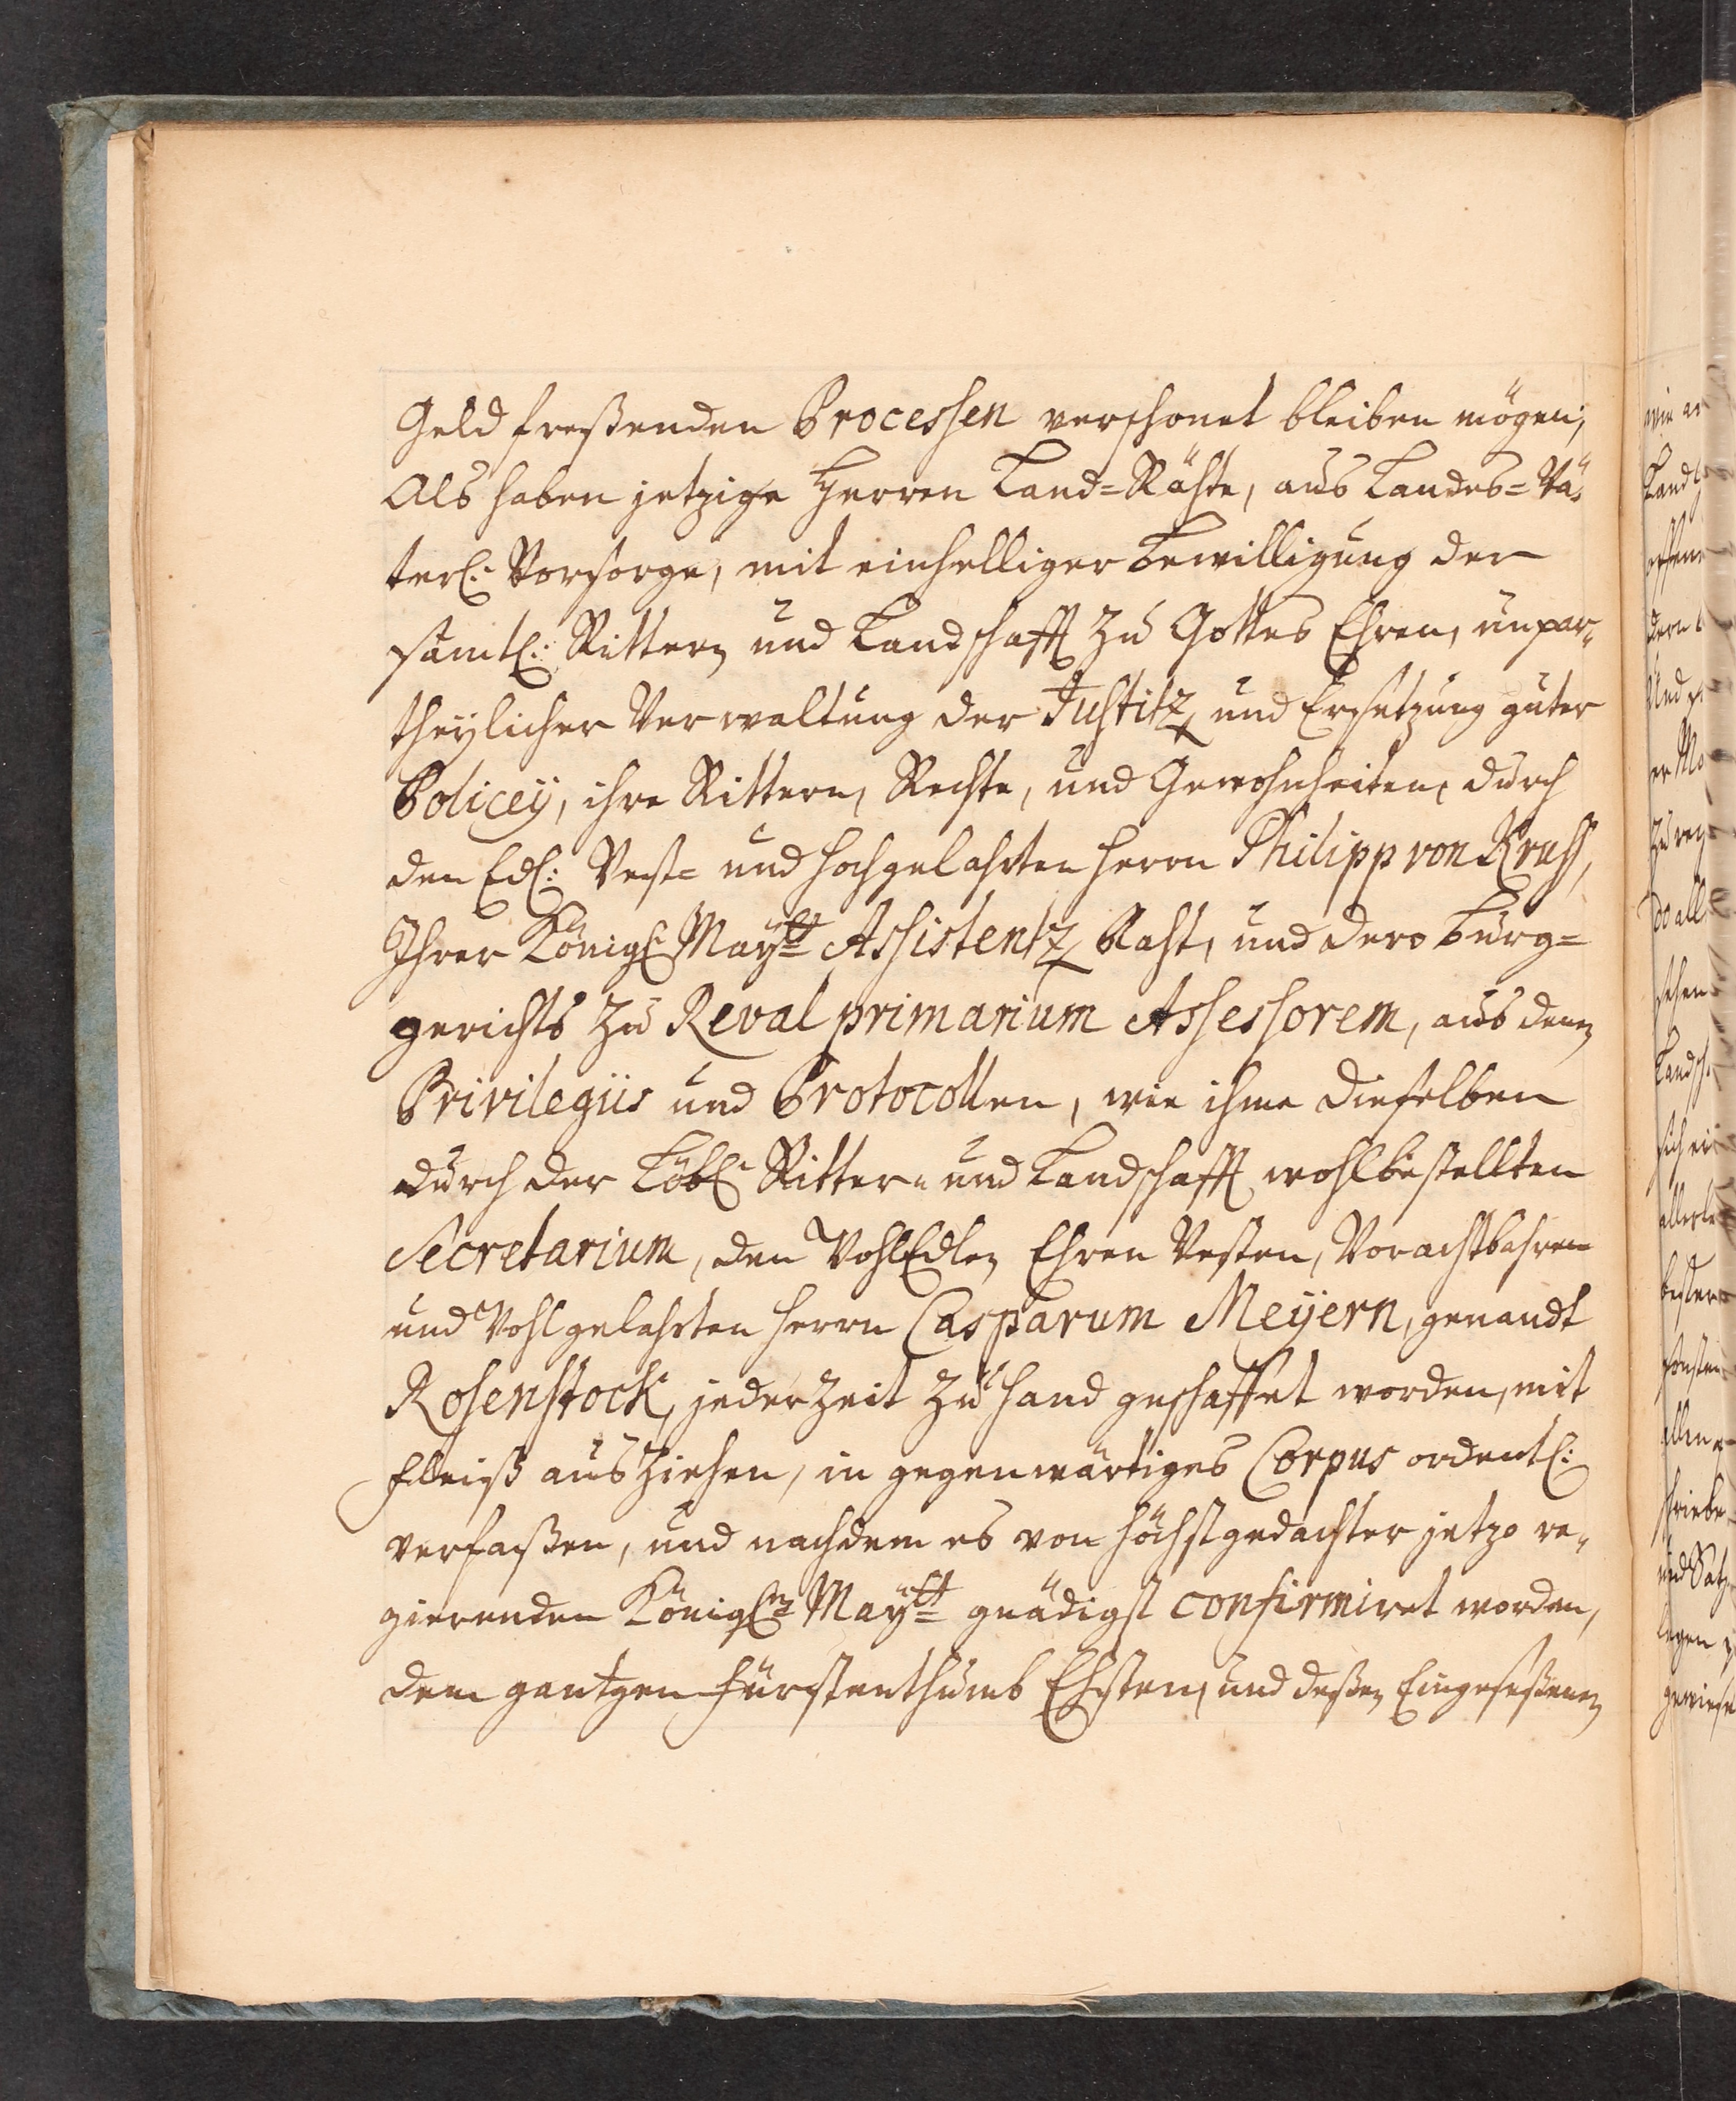 Geld freßenden Processen verschonet bleiben mögen;
Als haben jetzige Herren Land=Rähte, aus Landes=Vä,
terl: Vorsorge, mit einhelliger Bewilligung der
sämtl: Rittern und Landschafft zu Gottes Ehren, unpar„
theylicher Verwaltung der Justitz und Ersetzung guter
Policey, ihre Rittern, Rechte, und Gewohnheiten, durch
den Edl: Vest= und Hochgelahrten Herrn Philipp von Kruss,
Ihrer Königl: Maytt Assistentz Raht, und dero Burg=
gerichts zu Reval primarium Assessorem, aus denen
Privilegiis und Protocollen, wie ihme dieselben
durch der Löbl: Ritter= und Landschafft wohlbestellten
Secretarium, den WohlEdlen Ehren Vesten, Vorachtbahren
und Wohlgelahrten Herrn Casparum Meyern, genandt
Rosenstock, jederzeit zu Hand geschaffet worden, mit
Fleiß aus ziehen, in gegenwärtiges Corpus ordentl:
verfaßen, und nachdem es von höchstgedachter jetzo re„
gierenden Königln Maytt gnädigst confirmiret worden,
dem gantzen Fürstenthumb Ehsten, und deßen Eingeseßenen